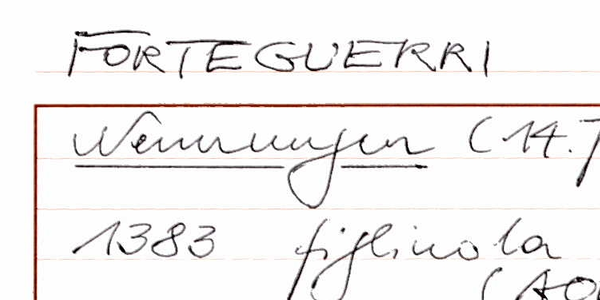 FORTEGUERRI
Nennungen (14.J
1383 figlinola
(AO